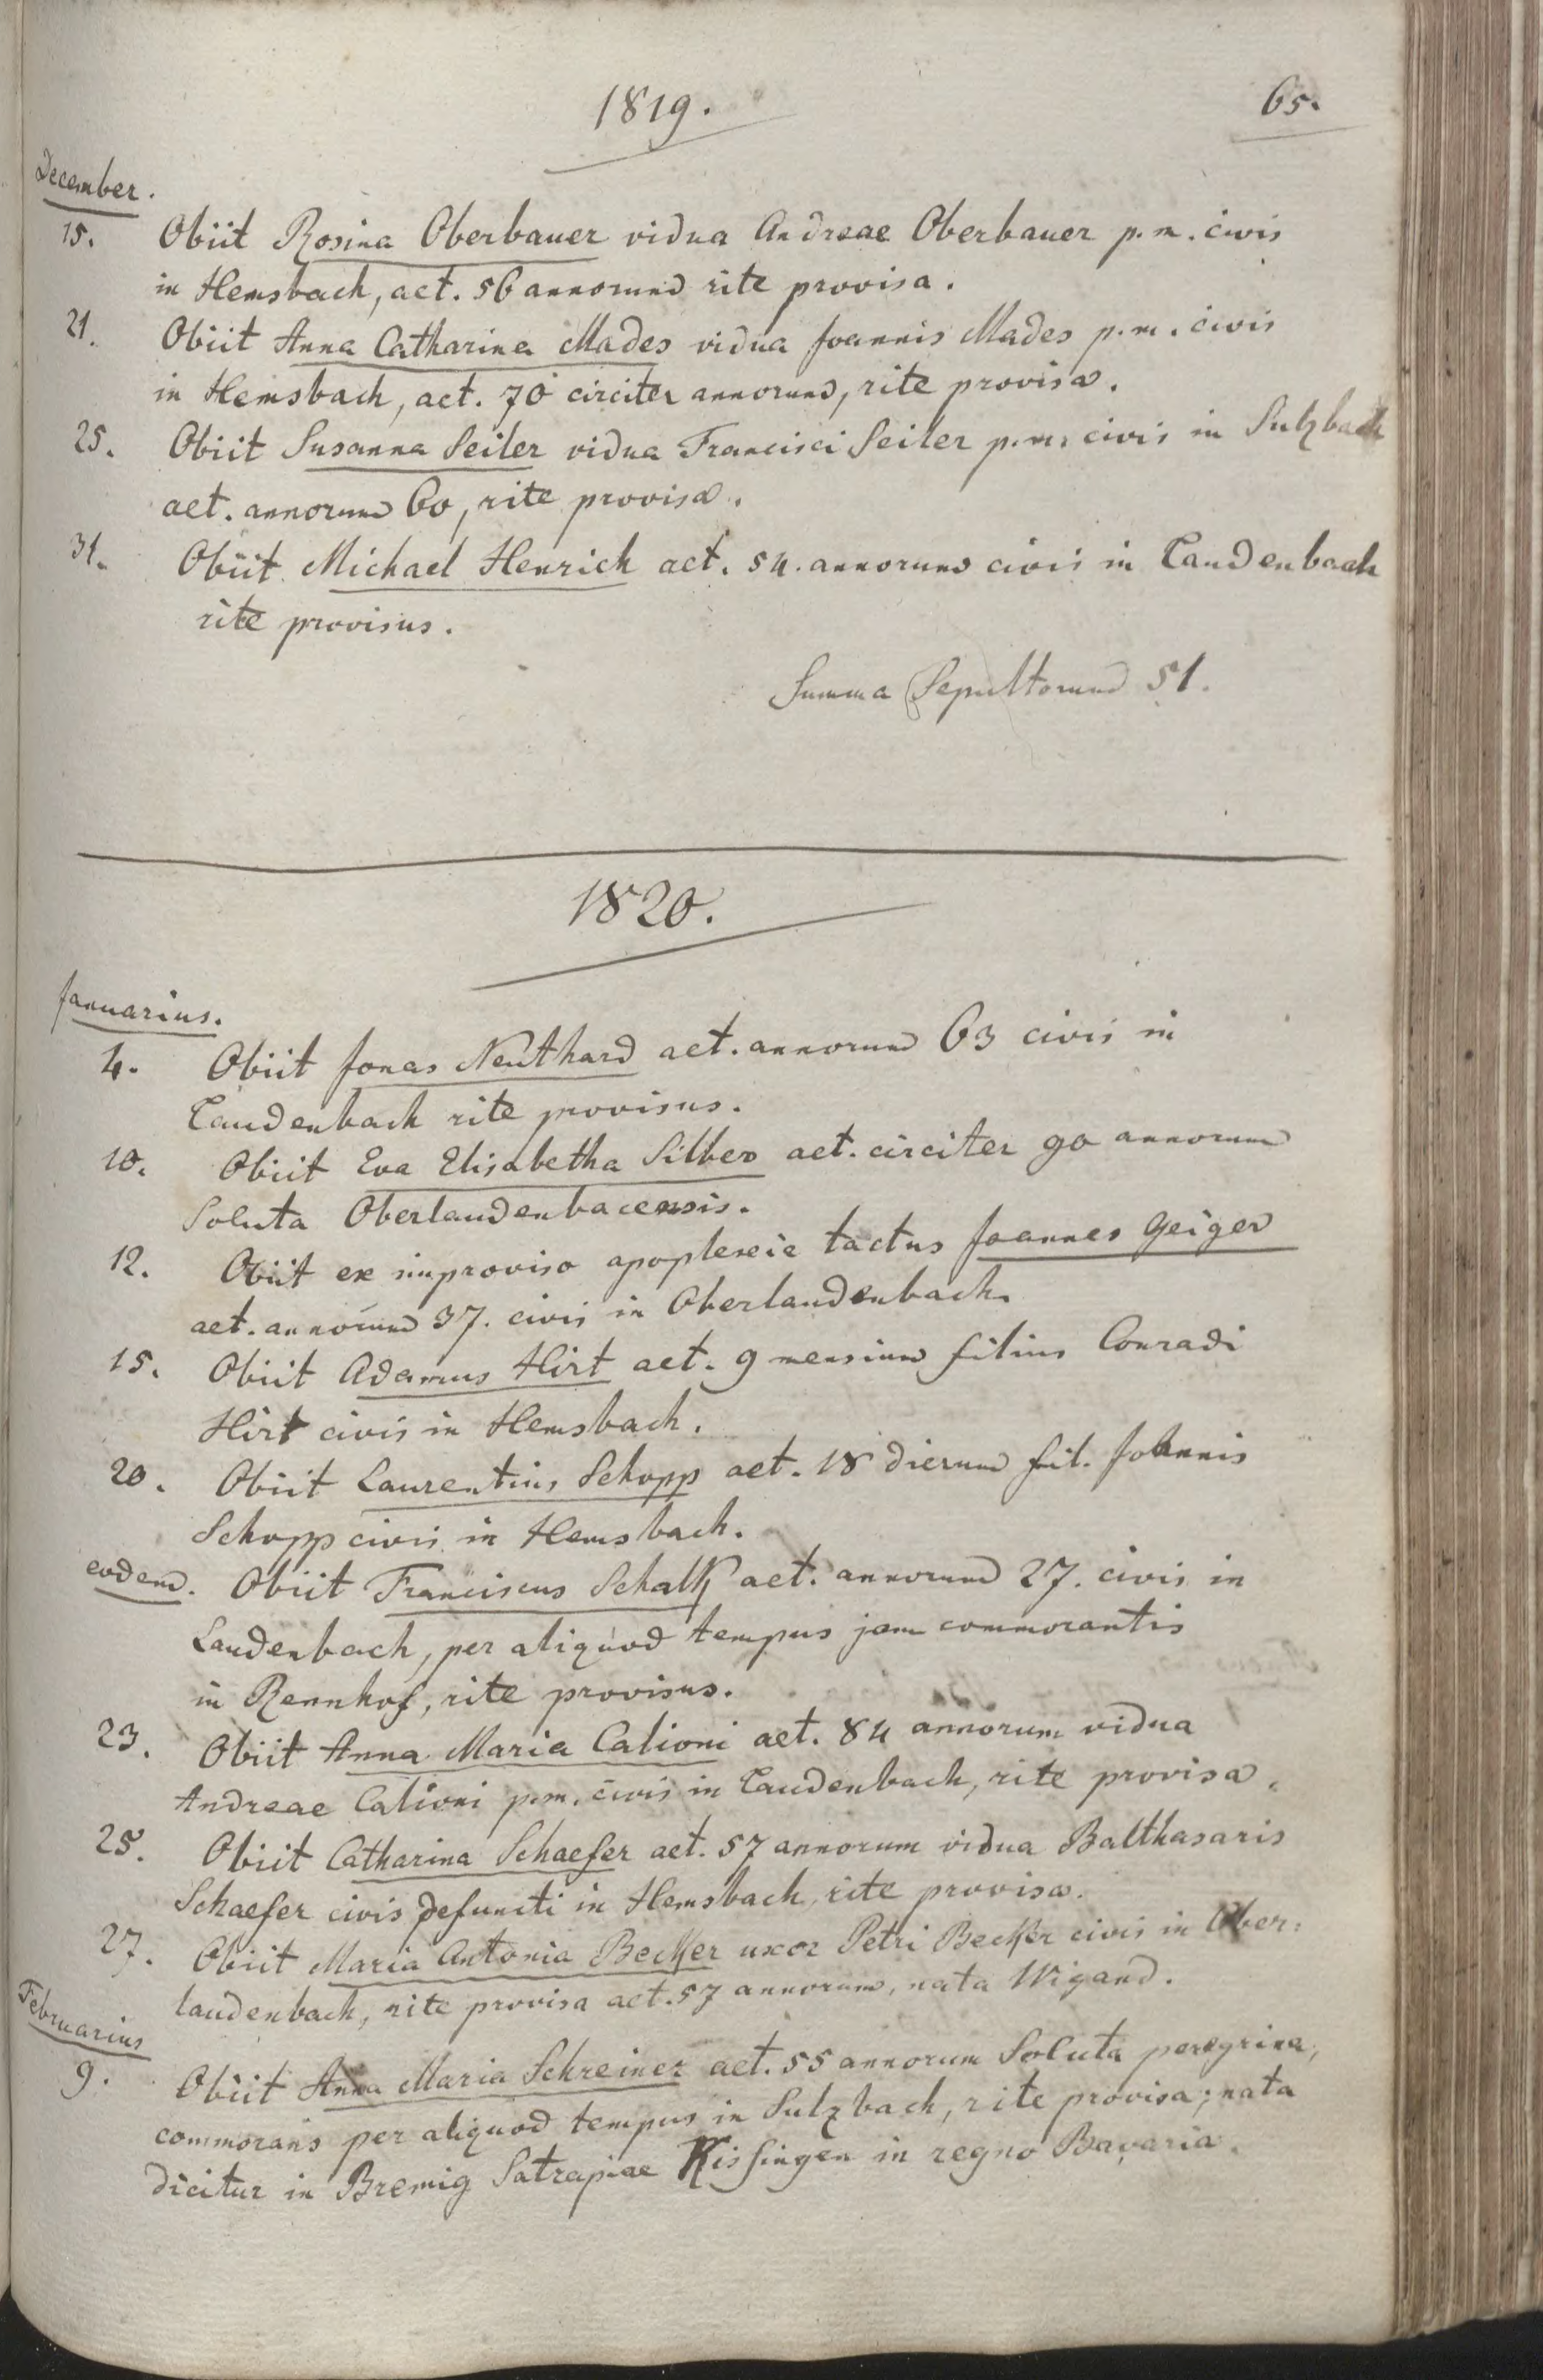 1819.
65.
December.
15. Obiit Rosina Oberbauer vidua Andreae Oberbauer p. m. civis
in Hemsbach, aet. 56 annorum rite provisa.
21. Obiit Anna Catharina Mades vidua Joannis Mades p. m. civis
in Hemsbach, aet. 70 circiter annorum, rite provisa.
25. Obiit Susanna Seiler vidua Francisci Seiler p. m. civis in Sulzbach
aet. annorum 60, rite provisa.
31. Obiit Michael Henrich aet. 54. annorum civis in Laudenbach
rite provisus.
Summa Sepultorum 51.
1820.
Januarius.
4. Obiit Jonas Neuthard aet. annorum 63 civis in
Laudenbach rite provisus.
10. Obiit Eva Elisabetha Silber aet. circiter 90 annorum
Soluta Oberlaudenbacensis.
12. Obiit ex improviso apoplexie tactus Joannes Geiger
aet. annorum 37. civis in Oberlaudenbach.
15. Obiit Adamus Hirt aet. 9 mensium filius Conradi
Hirt civis in Hemsbach.
20. Obiit Laurentius Schopp aet. 18 dierum fil. Johannis
Schopp civis in Hemsbach.
eodem. Obiit Franciscus Schalk aet. annorum 27. civis in
Laudenbach, per aliquod tempus jam commorantis
in Rennhof, rite provisus.
23. Obiit Anna Maria Calioni aet. 84 annorum vidua
Andreae Calioni p. m. civis in Laudenbach, rite provisa.
25. Obiit Catharina Schaefer aet. 57 annorum vidua Balthasaris
Schaefer civis defuncti in Hemsbach, rite provisa.
27. Obiit Maria Antonia Becker uxor Petri Becker civis in Ober:
laudenbach, rite provisa aet. 57 annorum, nata Wigand.
Februarius
9. Obiit Anna Maria Schreiner aet. 55 annorum Soluta peregrina,
commorans per aliquod tempus in Sulzbach, rite provisa; nata
dicitur in Bremig Satrapiae Kissingen in regno Bavaria.